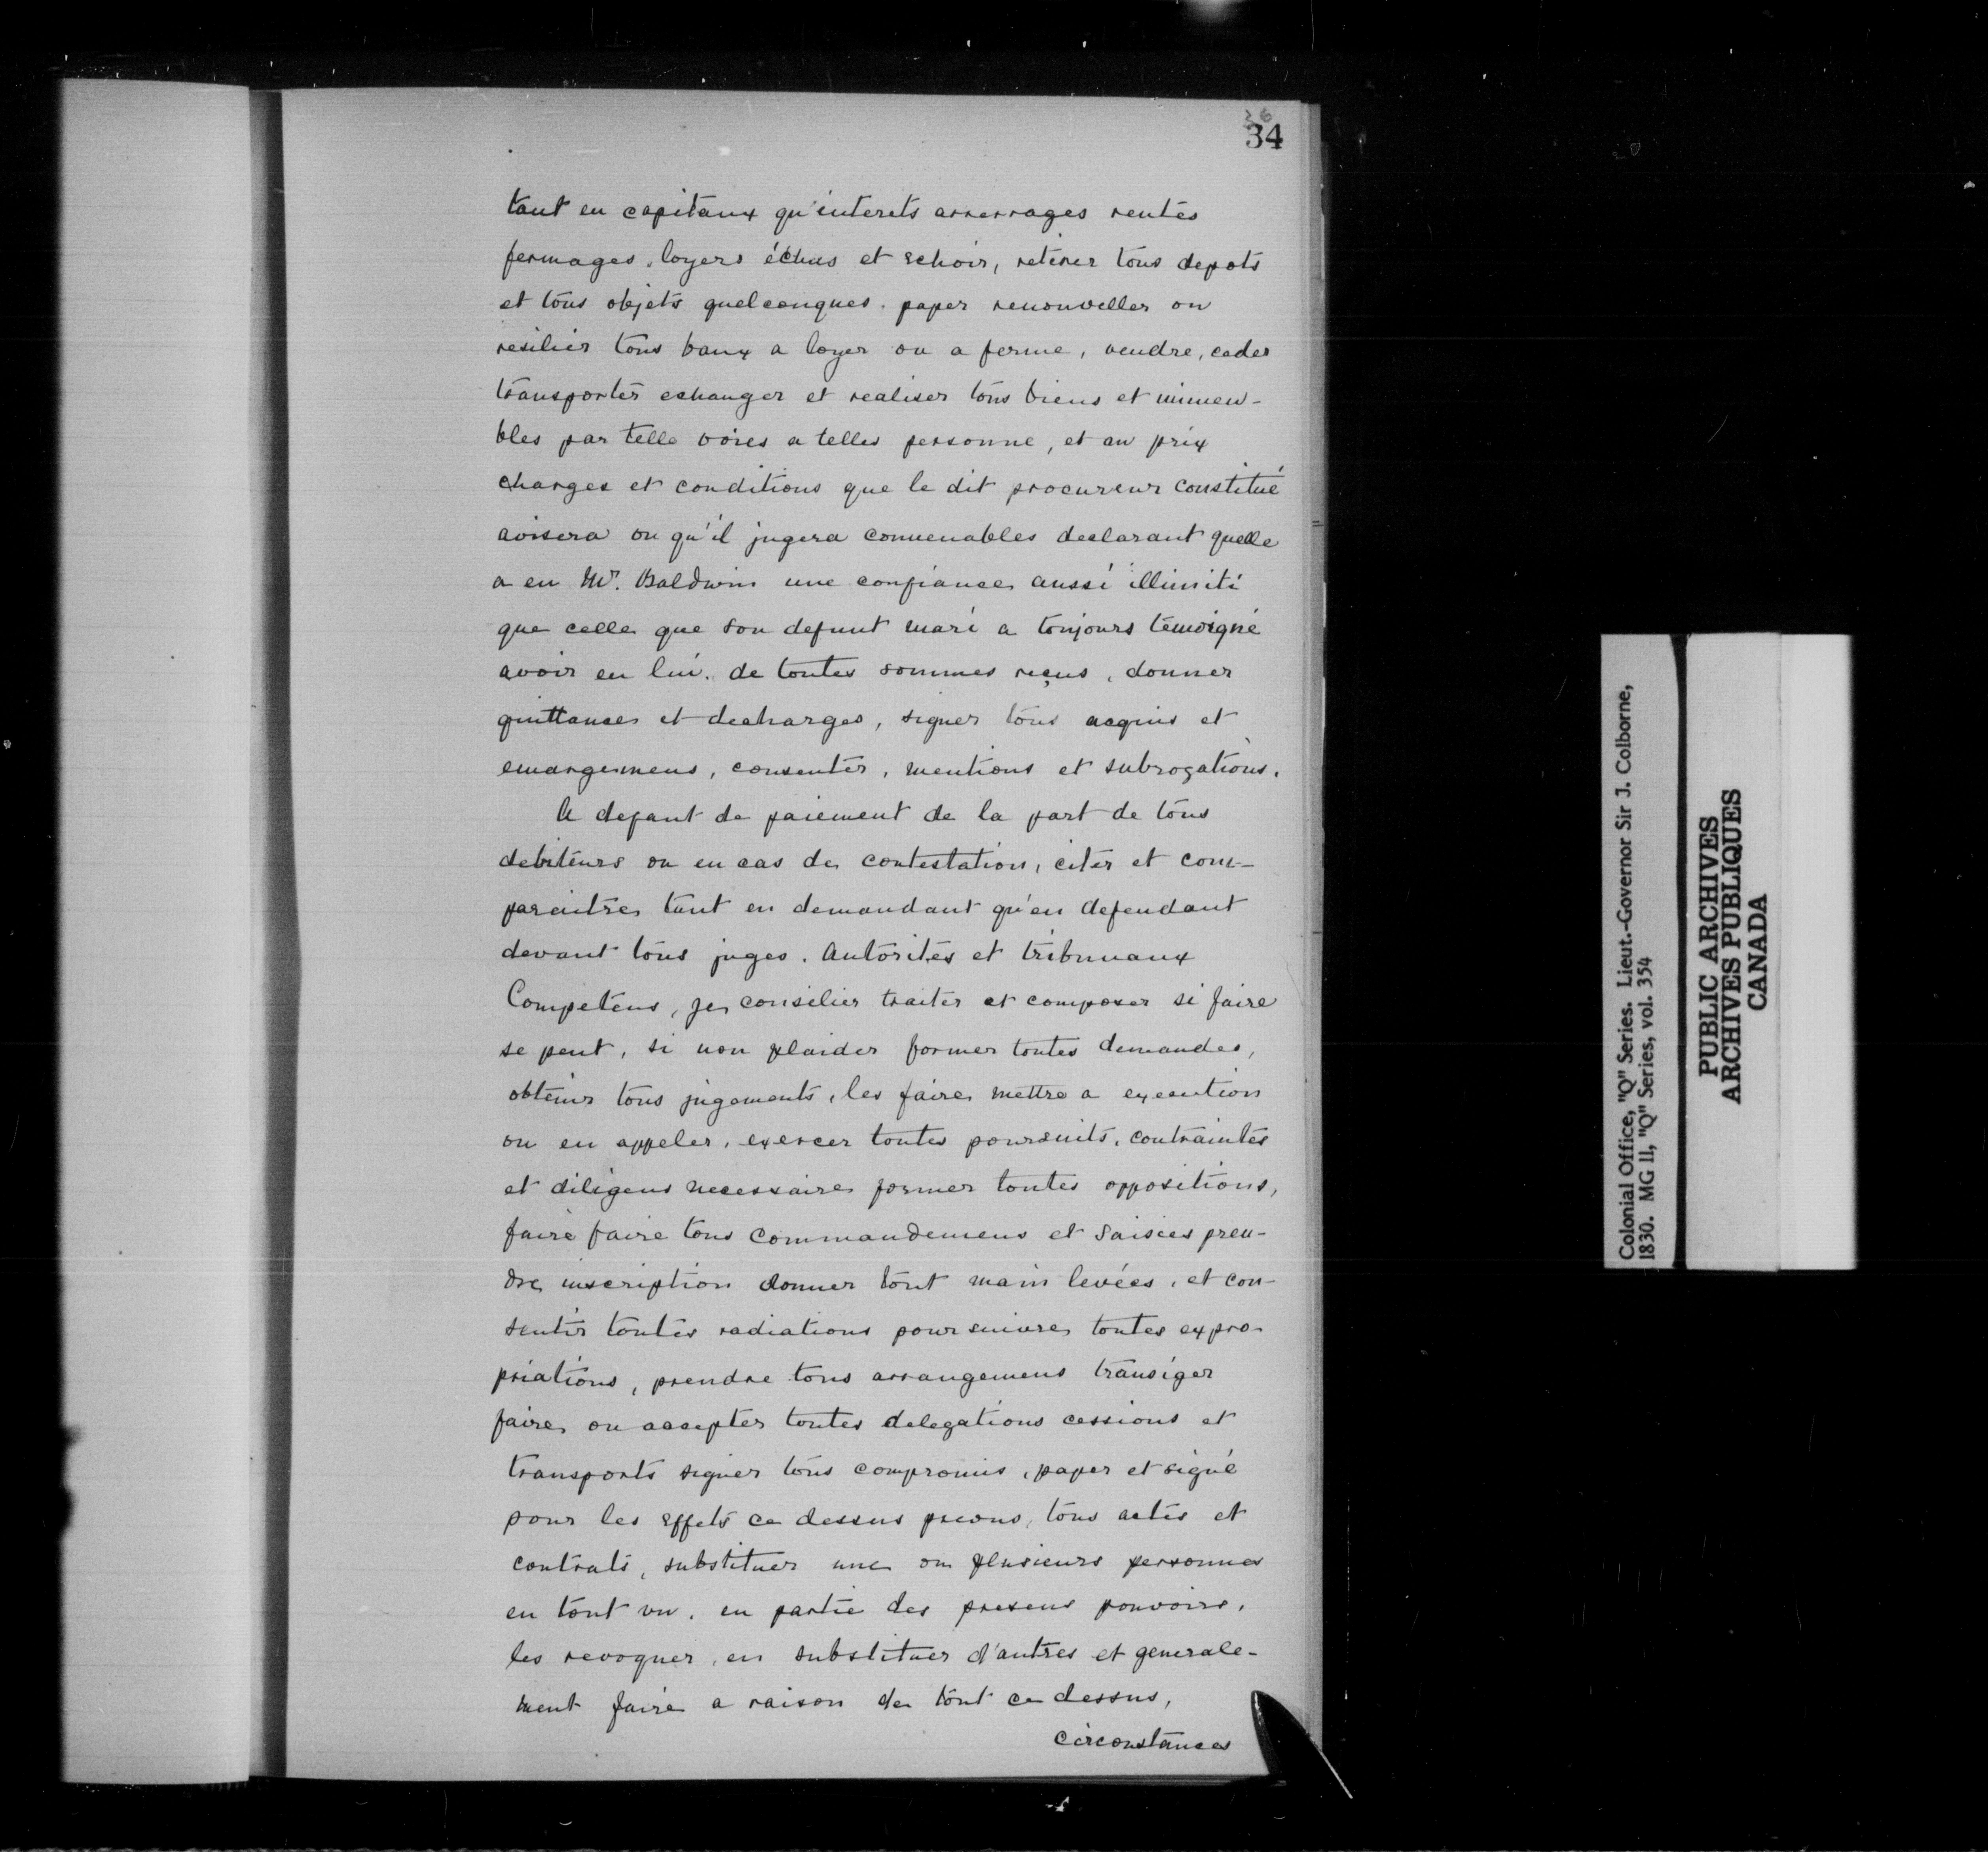 36
34
tant en capitaux qu'interets arrerages rentes
fermages, loyers échus et echoir, retirer tous depots
et tous objets quelconques. paper renouveller ou
resilier tous baux a loyer ou a ferme, vendre, ceder
transporter echanger et realiser tous biens et immeu-
bles par telle voies a telles personne, et au prix
charges et conditions que le dit procureur constitué
avisera ou qu'il jugera convenables declarant quelle
a en Mr. Baldwin une confiance aussi illimité
que celle que son defunt mari a toujours témoigné
avoir en lui. de toutes sommes reçus, donner
quittances et decharges, signer tous acquis et
emargemens, consentir, mentions et subrogations.
A defaut de paiement de la part de tous
debiteurs ou en cas de contestation, citer et com-
paraitre tant en demandant qu'en defendant
devant tous juges. Autorités et tribunaux
Competens, se consilier traiter et composer si faire
se peut, si non plaider former toutes demandes,
obtenir tous jugements, les faire mettre a execution
ou en appeler, exercer toutes poursuits, contraintes
et diligens necessaires former toutes oppositions,
faire faire tous commandemens et saisies pren-
dre inscription donner tout main levées, et con-
sentir toutes radiations poursuivre toutes expro-
priations, prendre tous arrangemens transiger
faire ou accepter toutes delegations cessions et
transports signer tous compromis, paper et signé
pour les effets ce dessus tous actes et
contrats, substituer une ou plusieurs personnes
en tout ou, en partie des presens pouvoirs,
les revoquer, en substituer d'autres et generale-
ment faire a raison de tout ce dessus,
circonstances
Colonial Office, "Q" Series. Lieut.-Governor Sir J. Colborne,
1830. MG 11, "Q" Series, vol. 354
PUBLIC ARCHIVES
ARCHIVES PUBLIQUES
CANADA